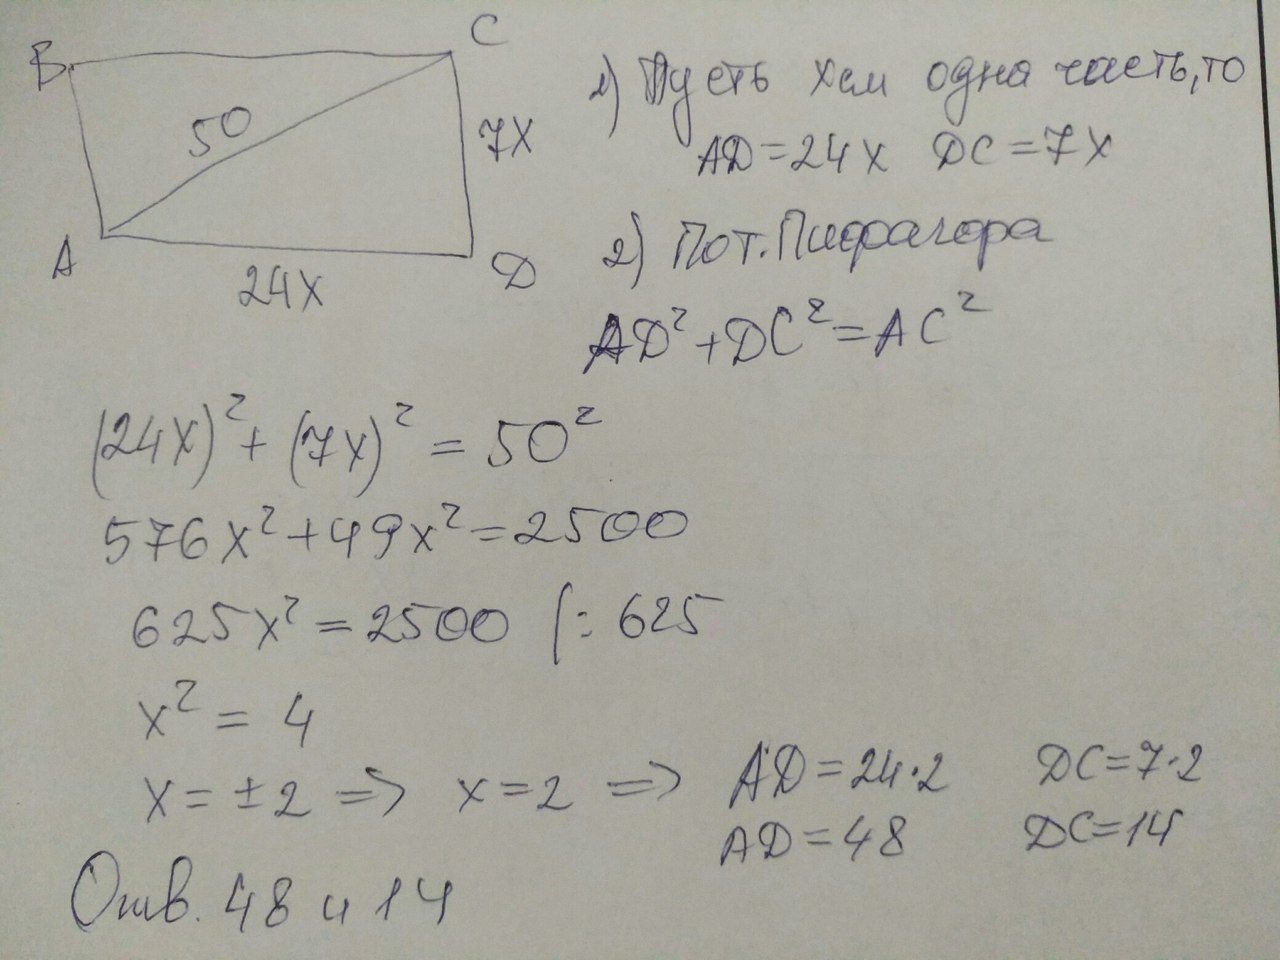 B
C
50
7x
A
24x
D
1) Пусть x см одна часть, то
AD=24x DC=7x
2) По т. Пифрагора
AD²+DC²=AC²
(24x)²+(7x)²=50²
576x²+49x²=2500
625x²=2500 |:625
x²=4
x=±2 => x=2 => AD=24·2 DC=7·2
AD=48 DC=14
Отв. 48 и 14